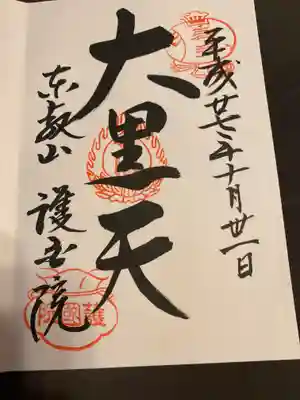 平成廿年十月丗一日
大黒天
東叡山 護国院
護國院